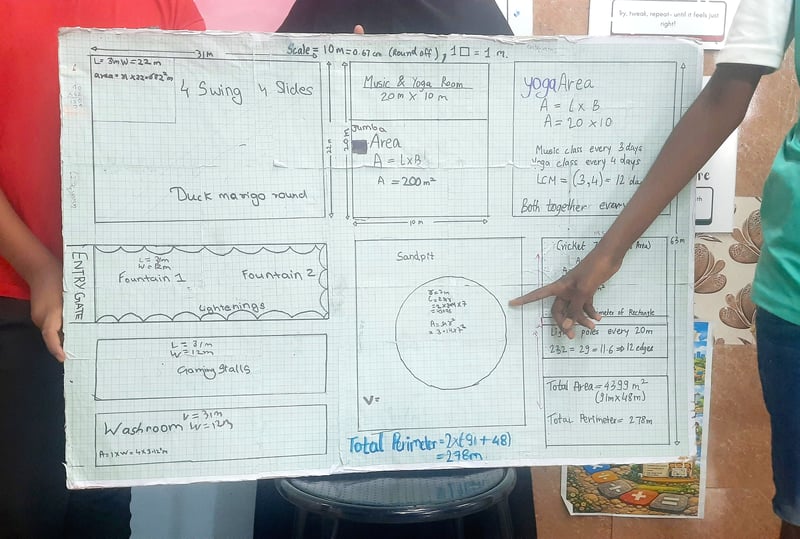 Scale = 10m = 0.67 cm (Round off), 1□ = 1 m.
31m
L = 31m W = 22 m
4 Swing 4 Slides
Duck marigo round
22m
Music & Yoga Room
20m x 10m
20m
Jumba
Area
A = L x B
A = 200 m²
10 m
yoga Area
A = L x B
A = 20 x 10
Music class every 3 days
Yoga class every 4 days
LCM = (3,4) = 12
Both together every
63m
ENTRY GATE
L = 31m
W = 12m
Fountain 1
Fountain 2
Lightenings
L = 31m
W = 12m
Gaming Stalls
L = 31m
Washroom W = 12m
Sandpit
r = 7m
V=
Cricket
Area)
meter of Rectangle
poles every 20m
232 = 29 = 11.6 => 12 edges
Total Area = 4399 m²
(91m x 48m)
Total Perimeter = 278m
Total Perimeter = 2x(91 + 48)
= 278m
Try, tweak, repeat- until it feels just
right!